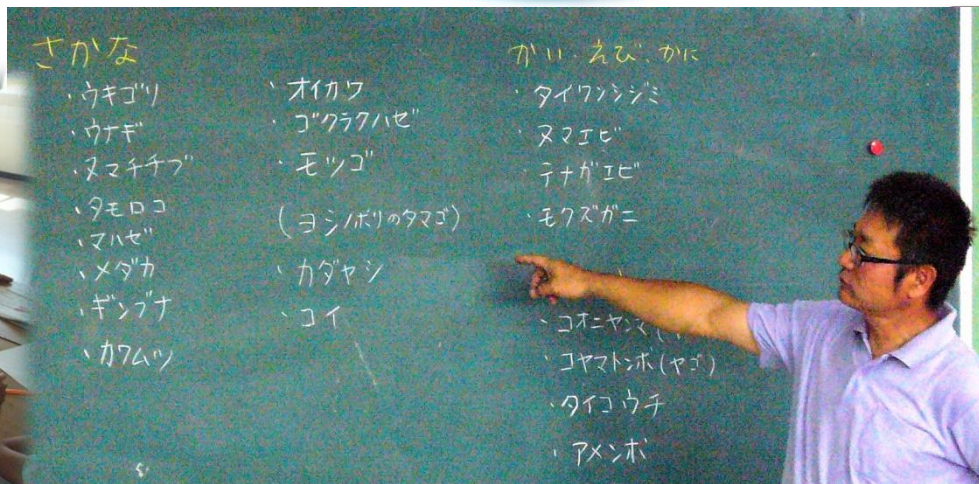 さかな
・ウキゴリ
・ウナギ
・ヌマチチブ
・タモロコ
・マハゼ
・メダカ
・ギンブナ
・カワムツ
・オイカワ
・ゴクラクハゼ
・モツゴ
(ヨシノボリのタマゴ)
・カダヤシ
・コイ
かい・えび・かに
・タイワンシジミ
・ヌマエビ
・テナガエビ
・モクズガニ
・コオニヤンマ(
・コヤマトンボ(ヤゴ)
・タイコウチ
・アメンボ